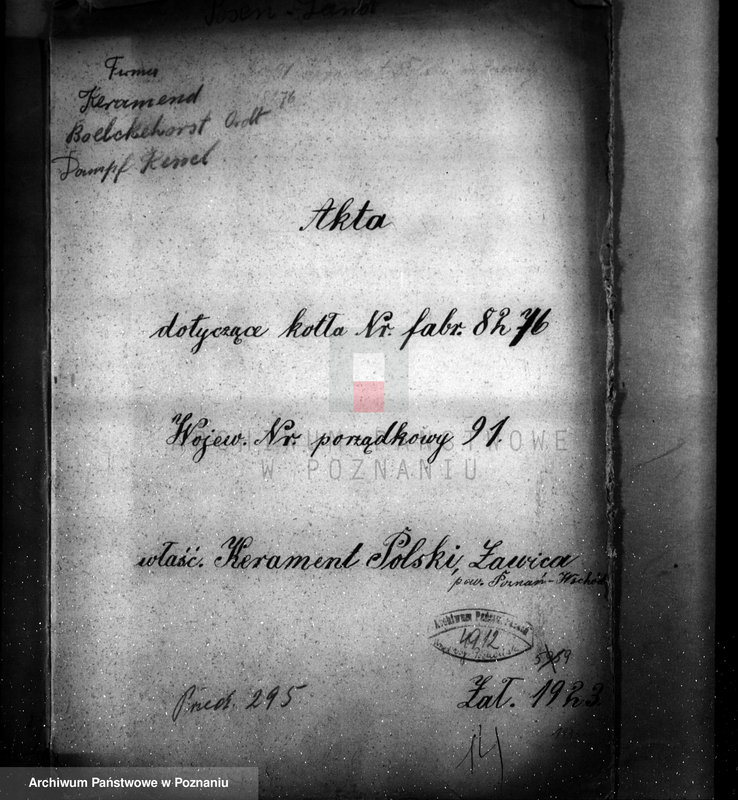 Posen - Land
Firma
Keramend
Boelckehorst
Dampf Kessel
Akta
dotyczące kotła Nr. fabr. 8276
Wojew. Nr. porządkowy 91.
ARCHIWUM PAŃSTWOWE
W POZNANIU
właść. Kerament Polski, Ławica
pow. Poznań-Wschód
Archiwum Państw.
4912
Zał. 1923
295
Archiwum Państwowe w Poznaniu